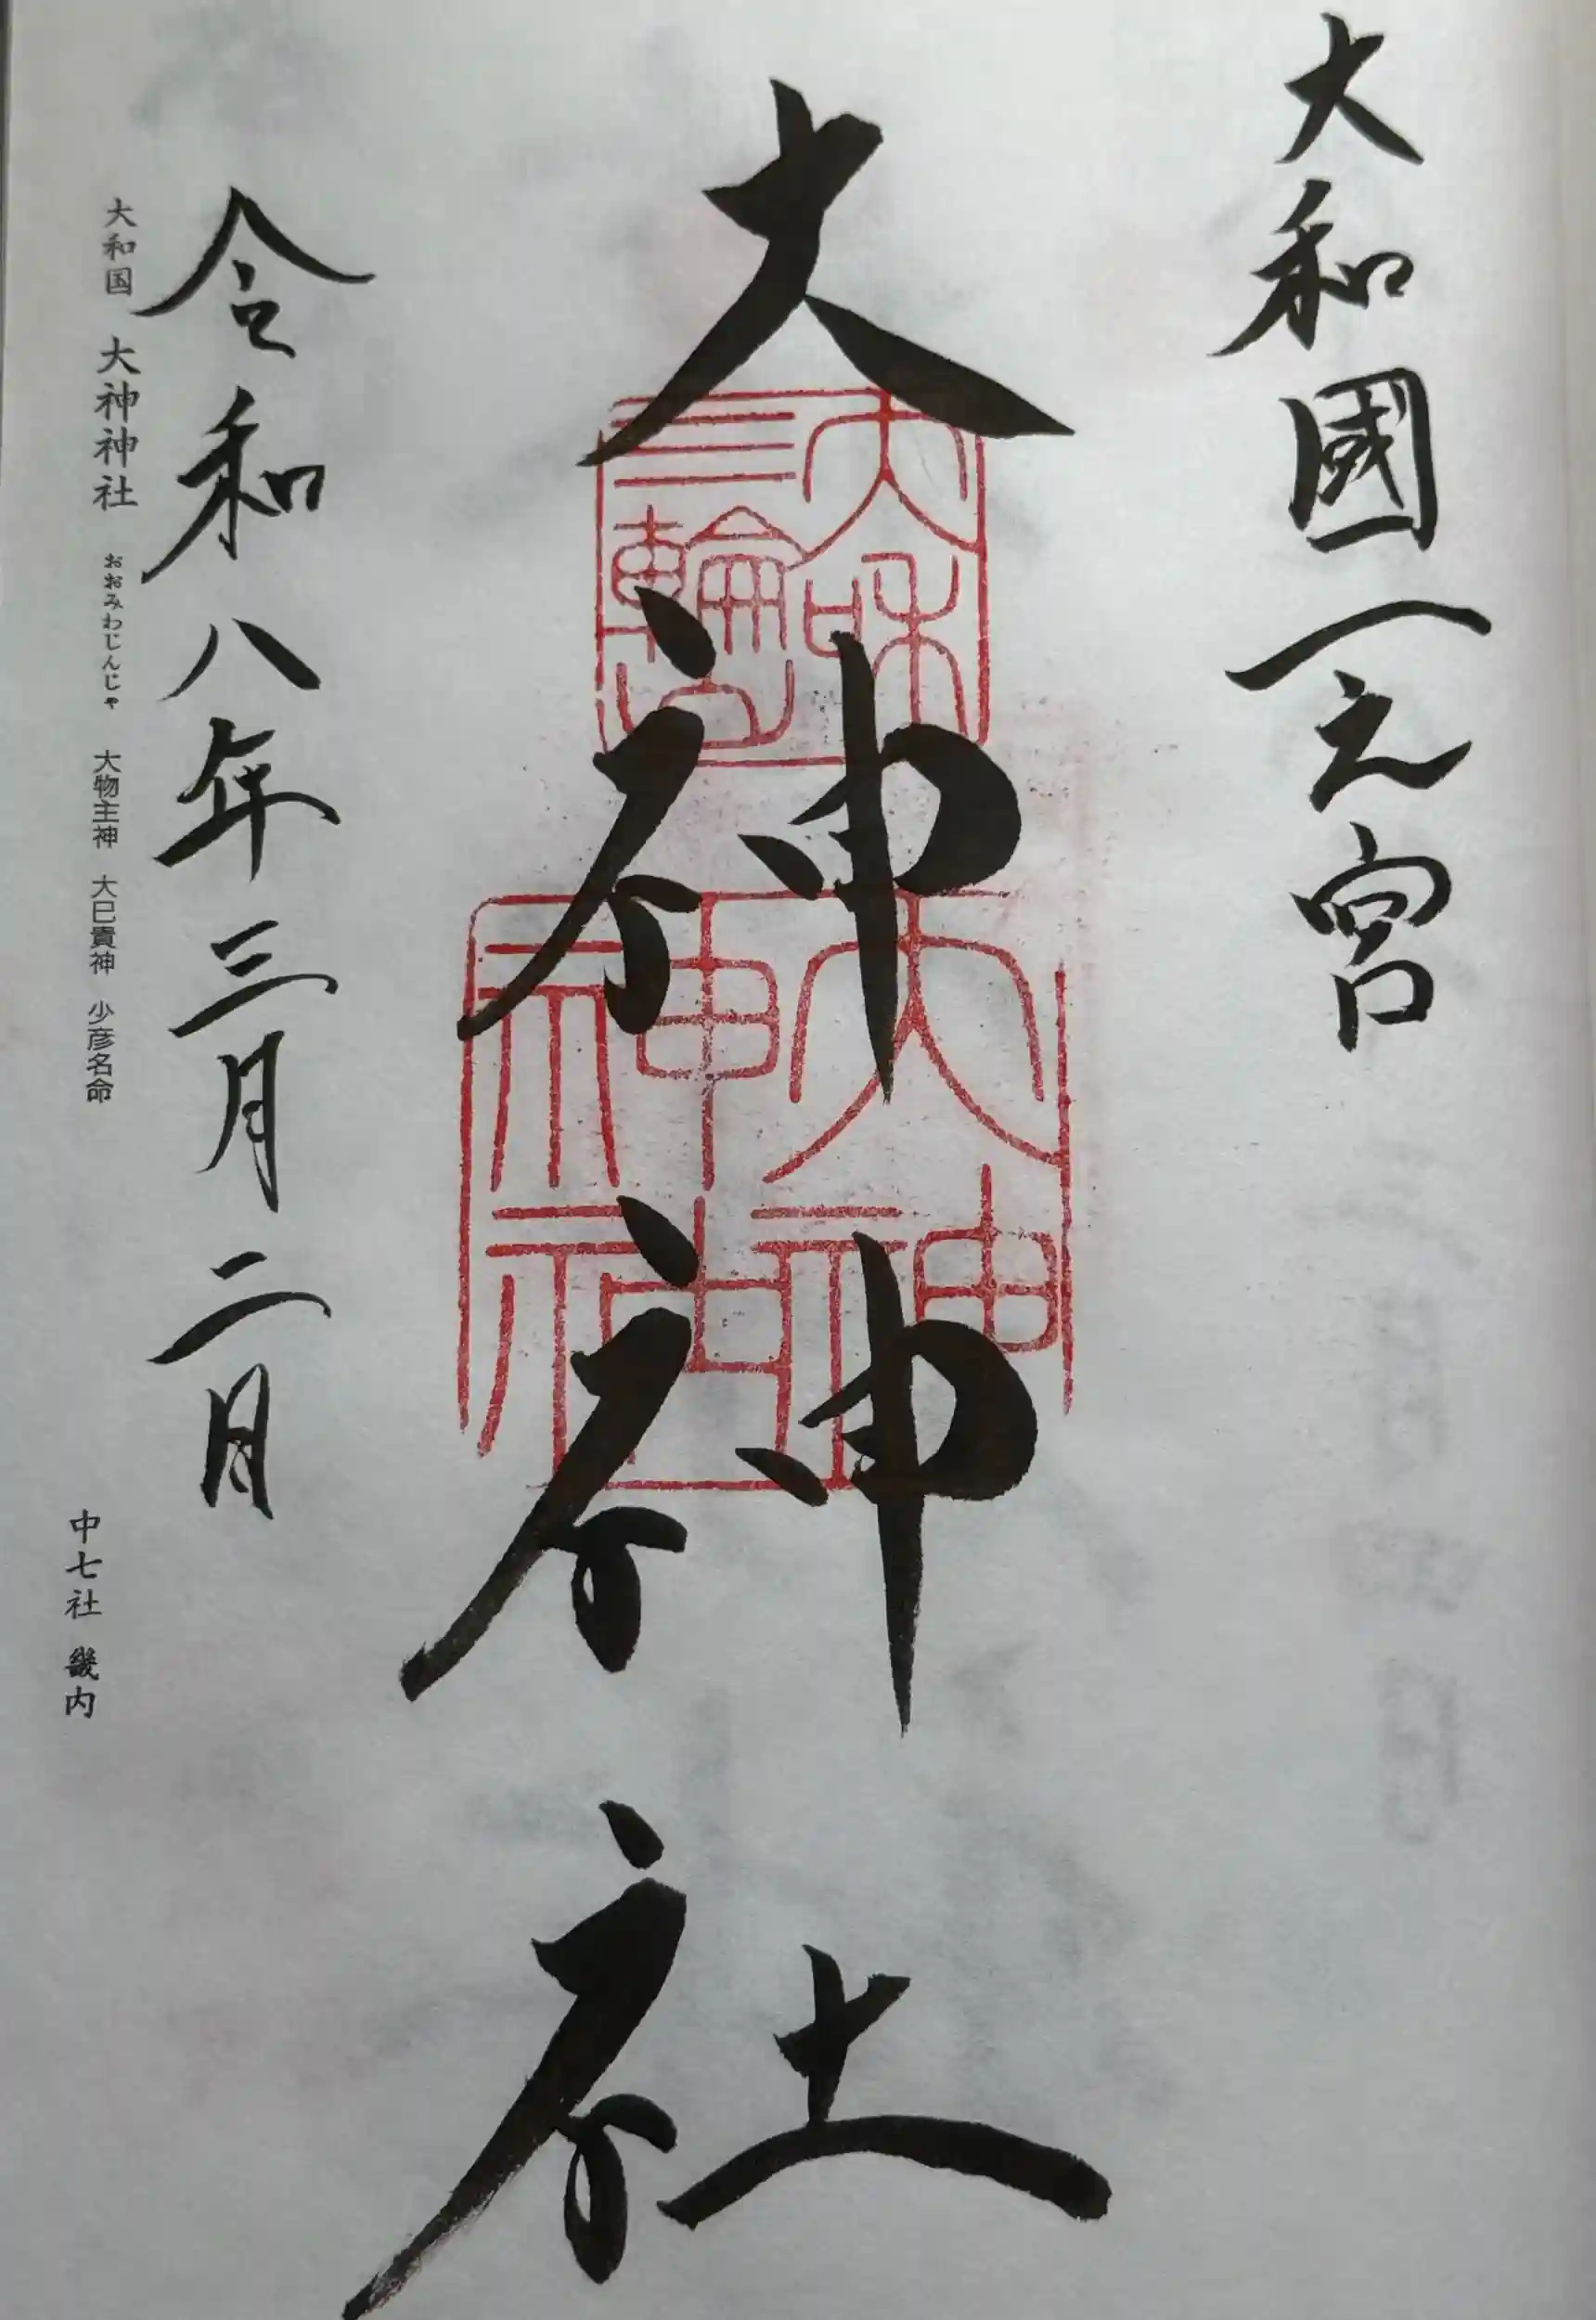 大和國一之宮
大神神社
大和三輪山
大神神社
令和八年三月二日
大和国 大神神社 おおみわじんじゃ 大物主神 大巳貴神 少彦名命
中七社 畿内